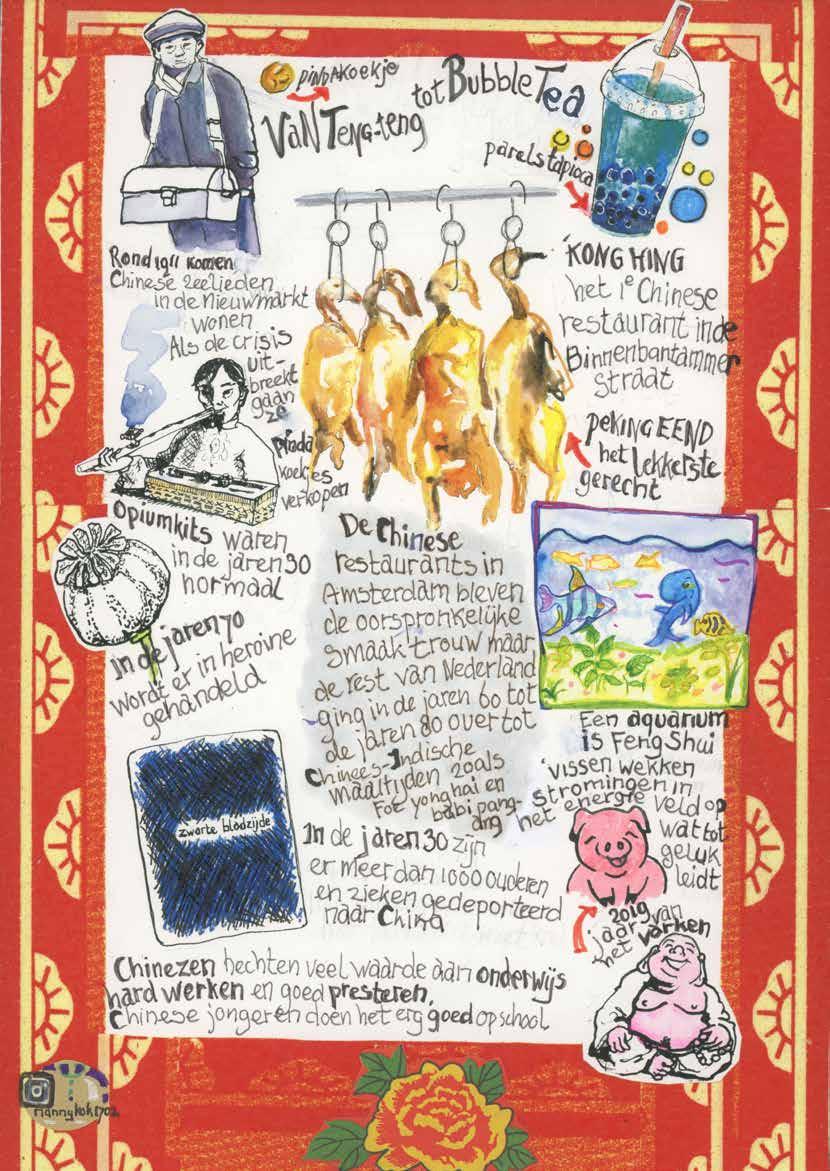 pindakoekje
Van Teng-teng
tot Bubble Tea
parels tapioca
Rond 1911 komen
Chinese zeelieden
in de Nieuwmarkt
wonen
Als de crisis
uit-
breekt
gaan
ze
pinda
koekjes
verkopen
'KONG HING
het 1e Chinese
restaurant in de
Binnenbantammer
straat
PEKING EEND
het lekkerste
gerecht
Opiumkits waren
in de jaren 30
normaal
In de jaren 70
wordt er in heroine
gehandeld
De Chinese
restaurants in
Amsterdam bleven
de oorspronkelijke
smaak trouw maar
de rest van Nederland
ging in de jaren 60 tot
de jaren 80 over tot
Chinees-Indische
maaltijden zoals
Foe yong hai en
babi pang-
ang
Een aquarium
is Feng Shui
'vissen wekken
stromingen in
het energie veld op
wat tot
geluk
leidt
zwarte bladzijde
In de jaren 30 zijn
er meer dan 1000 ouderen
en zieken gedeporteerd
naar China
2019
jaar van
het varken
Chinezen hechten veel waarde aan onderwijs
hard werken en goed presteren.
Chinese jongeren doen het erg goed op school